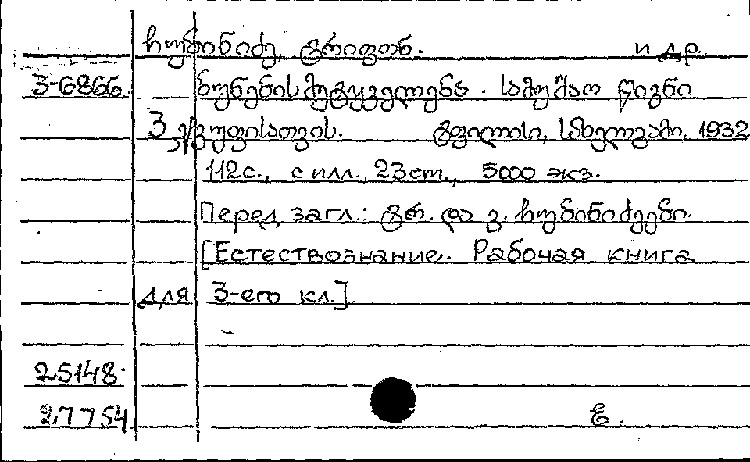 ჩუბინიძე ტრიფონ. и др.
3-6866. ბუნებისმეტყველება. სამუშაო წიგნი
3 ჯგუფისათვის. ტფილისი, სახელგამი, 1932
112 с., с илл., 23 cm., 5000 экз.
Перед загл.: ტრ. და ვ. ჩუბინიძეები.
[Естествознание. Рабочая книга
для 3-его кл.]
25148.
27754